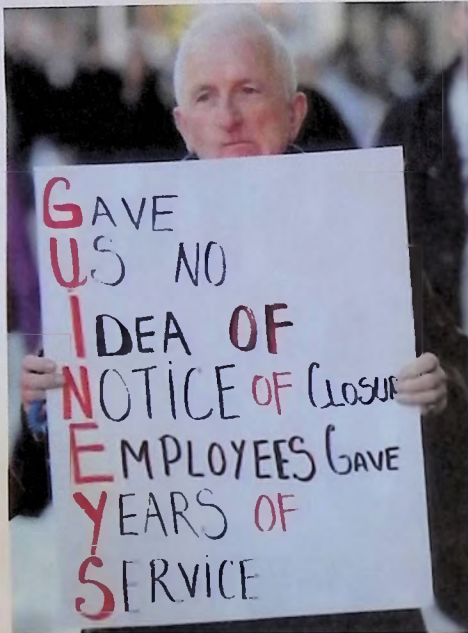 GAVE
US NO
IDEA OF
NOTICE OF CLOSUR
EMPLOYEES GAVE
YEARS OF
SERVICE